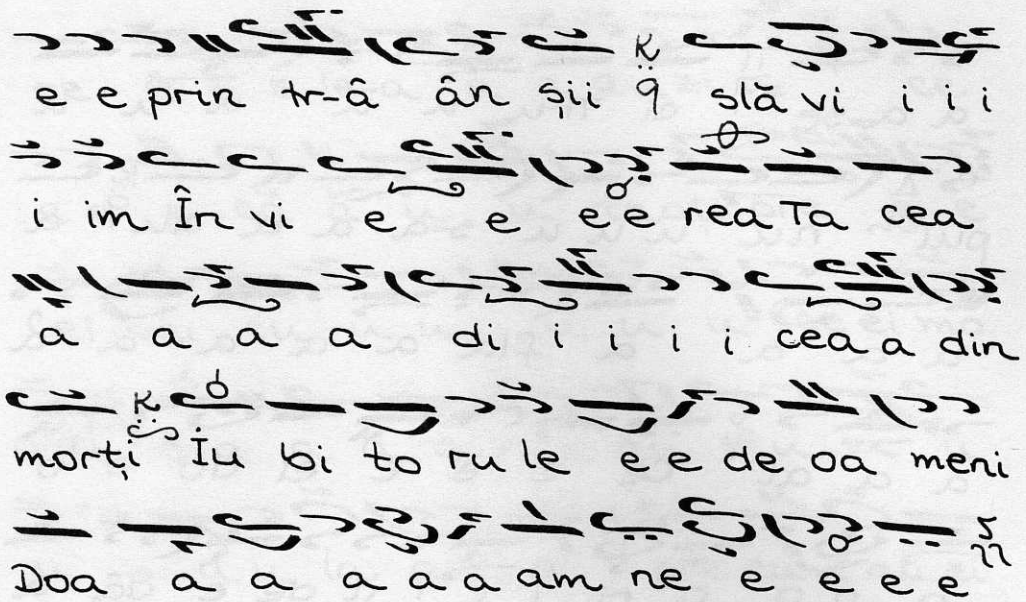 e e prin tr-â ân șii slă vi i i i
i im În vi e e e e rea Ta cea
a a a a di i i i i cea a din
morți Iu bi to ru le e e de oa meni
Doa a a a a a am ne e e e e